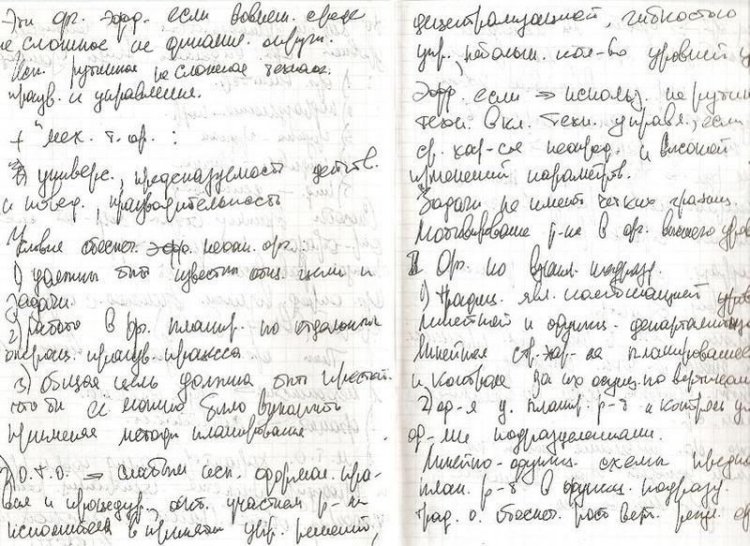 Эти орг. эфф. если во внеш. среде
не сложное не динамич. окруж.
Исп. рутинное не сложное технол.
произв. и управления.
+ "мех. т. ор. :
универс., предсказуемость действ.
и производительность
Условия обеспеч. эфф. механ. орг:
1) должны быть известны общ. цели и
задачи.
2) работа в ор. планир. по отдельным
операц. произв. процесса
3) общая цель должна быть простой
что бы её можно было выполнить
применяя методы планирования
2) О.Т.О. ⇒ слабым исп. формал. пра-
вил и процедур, акт. участием р-ка
в принятии упр. решений,
децентрализацией, гибкостью
упр., небольш. кол-во уровней у
Эфф. если ⇒ использ. не рутин
техн. вкл. техн. управл., если
ср. хар-ся неопред. и высокой
параметров.
Задачи не имеют четких границ.
Мотивирование р-ка в ор. высшего уров
II Ор. по взаим. подразд.
1) традиц. явл. комбинацией
линейной и функц. департаментац
Линейная стр. хар-ся планированием
и контроля за их осущ. по вертикали
2) ор-я у. планир. р-т и контроль у
подразделениями.
Линейно-функц. схемы
план. р-т в функц. подразд.
трад. о. обеспеч. рост верт.